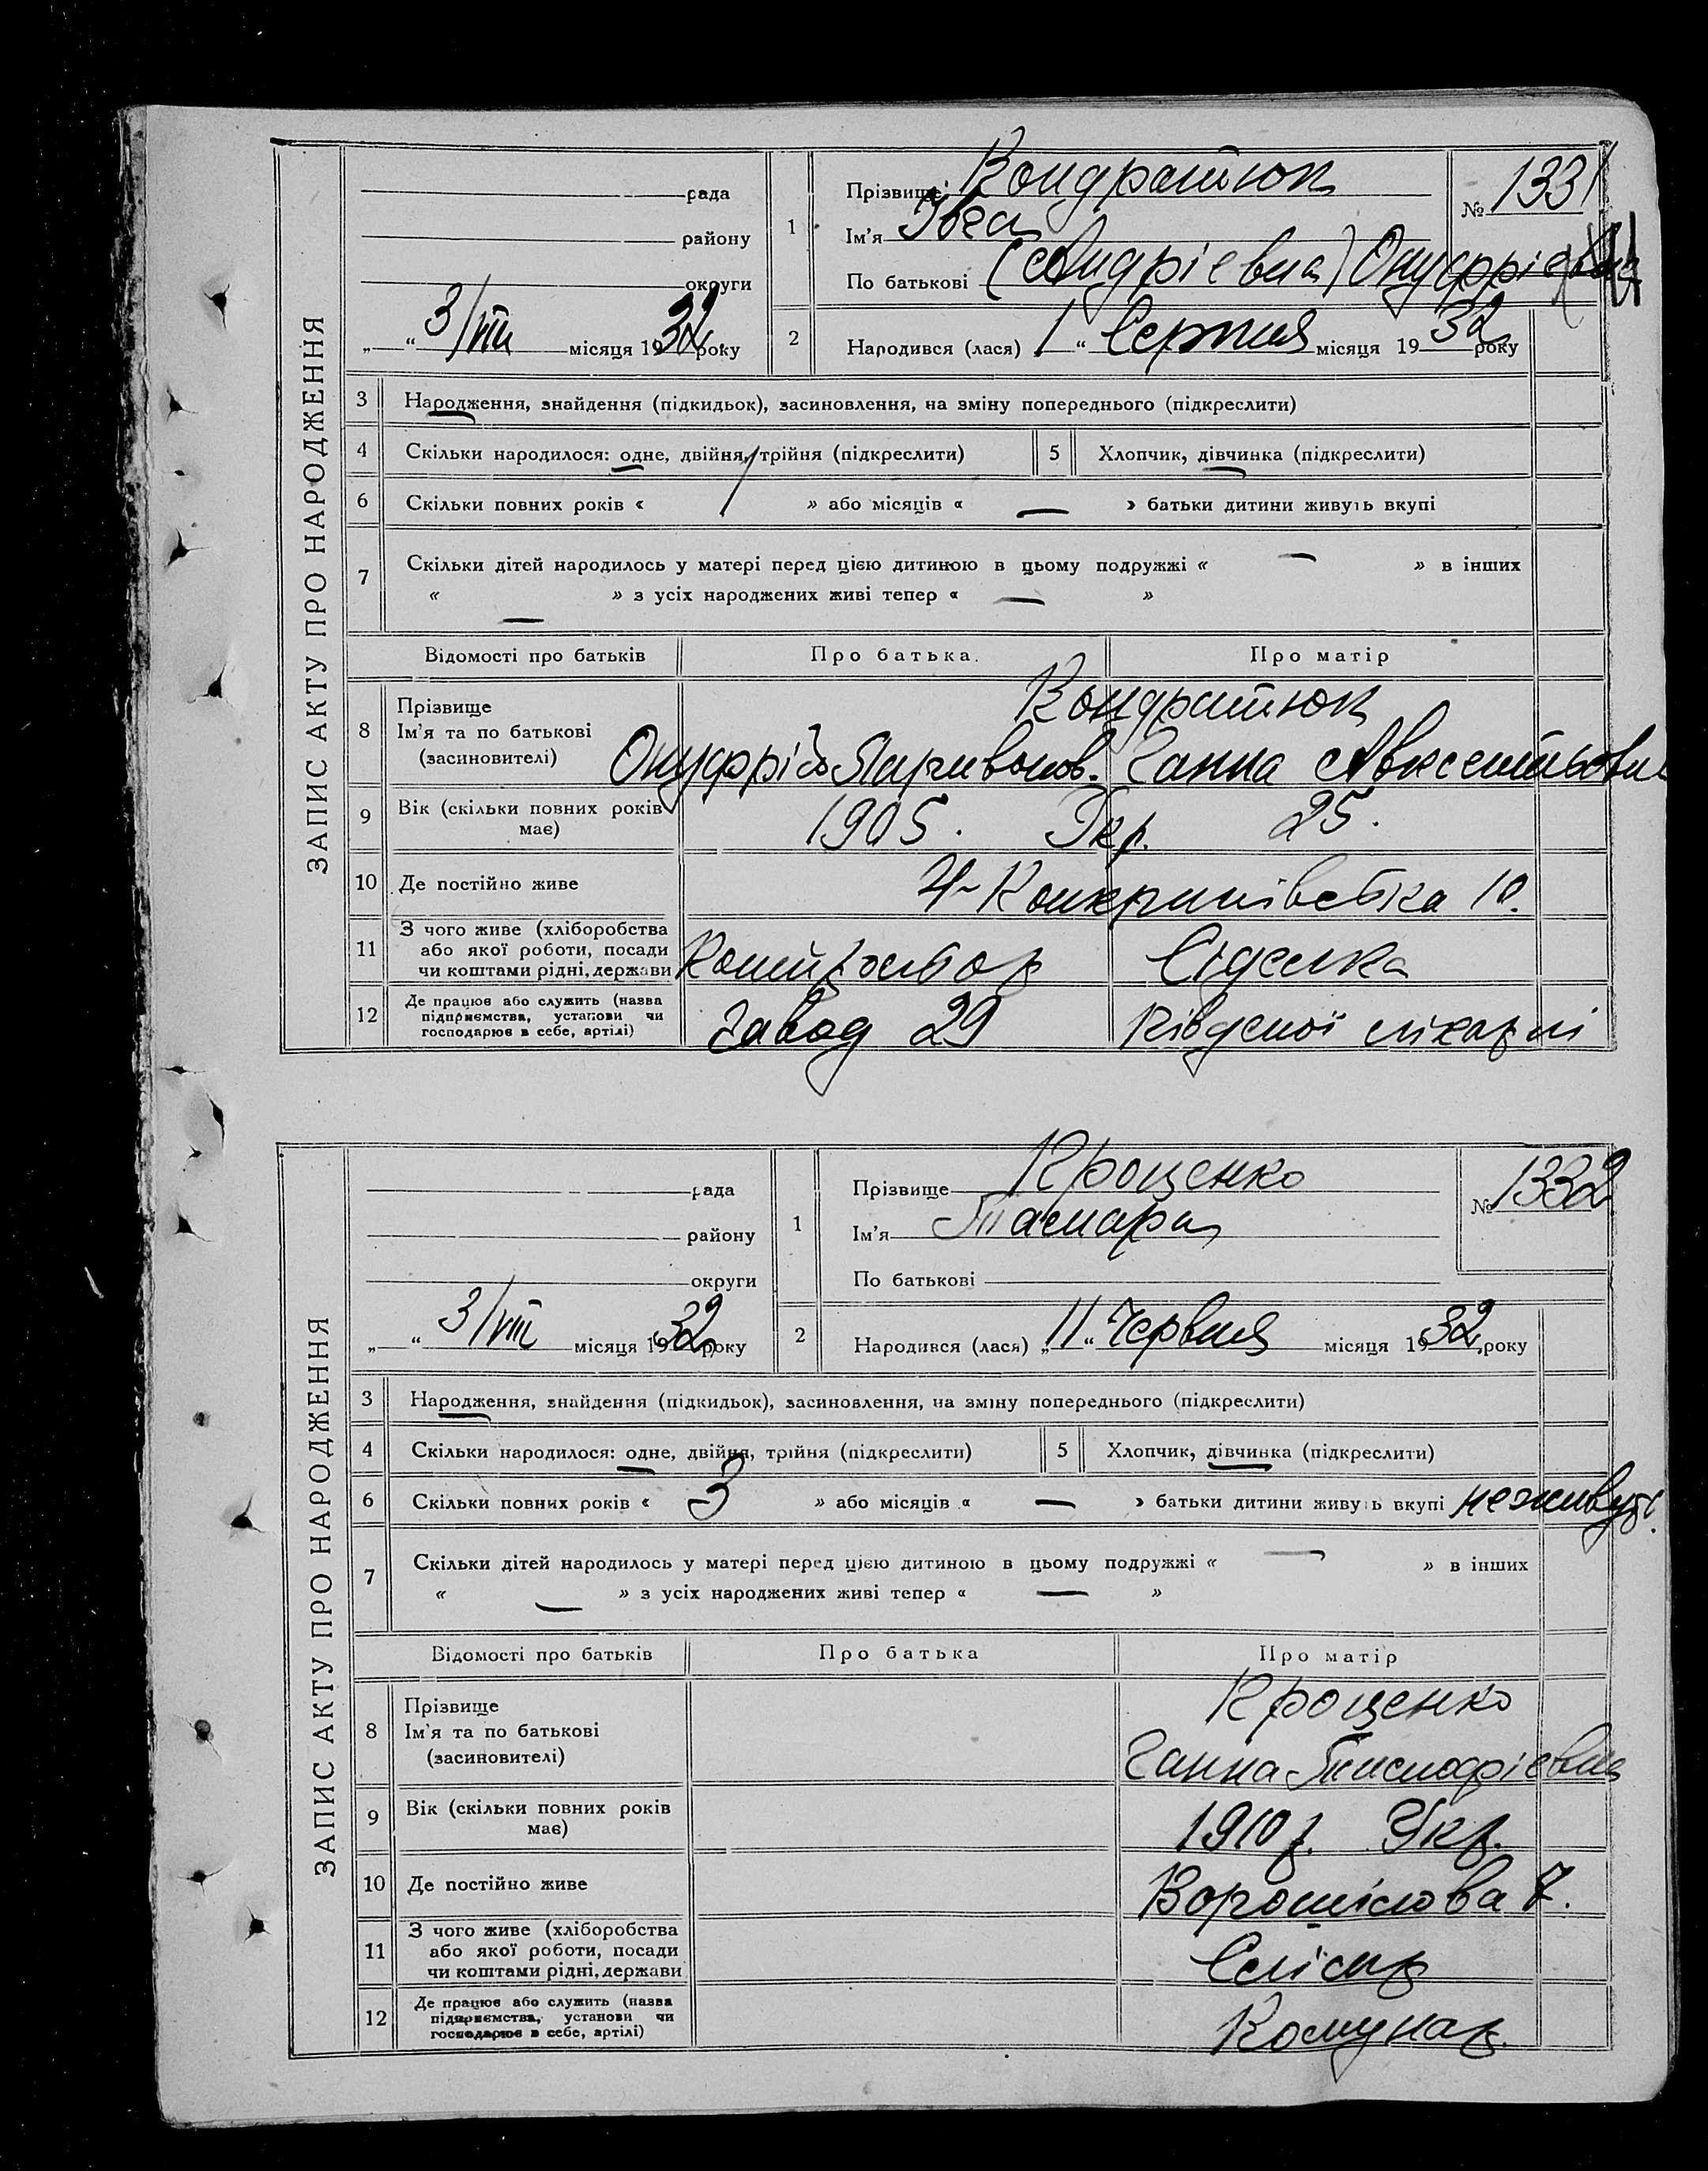 ЗАПИС АКТУ ПРО НАРОДЖЕННЯ
рада
району
округи
„ “ 3/VIII місяця 1932 року
1 Прізвище Кондратюк
Ім'я Інеа
По батькові (Андрієвна) Онуфрієвна
№ 1331
2 Народився (лася) 1 “ Серпня місяця 1932 року
3 Народження, знайдення (підкидьок), засиновлення, на зміну попереднього (підкреслити)
4 Скільки народилося: одне, двійня, трійня (підкреслити) 5 Хлопчик, дівчинка (підкреслити)
6 Скільки повних років « / » або місяців « — » батьки дитини живуть вкупі
7 Скільки дітей народилось у матері перед цією дитиною в цьому подружжі « — » в інших
« — » з усіх народжених живі тепер « — »
Відомості про батьків Про батька. Про матір
8 Прізвище
Ім'я та по батькові
(засиновителі)
Кондратюк
Онуфрій Ларивонов. Ганна Авксентьовна
9 Вік (скільки повних років має) 1905. Укр. 25.
10 Де постійно живе 10.
11 З чого живе (хліборобства
або якої роботи, посади
чи коштами рідні, держави
Сіделка
12 Де працює або служить (назва
підприємства, установи чи
господарює в себе, артілі)
Завод 29 лікарні
ЗАПИС АКТУ ПРО НАРОДЖЕННЯ
рада
району
округи
„ “ 3/VIII місяця 1932 року
1 Прізвище Кроценко
Ім'я Тамара
По батькові
№ 1332
2 Народився (лася) „11“ Червня місяця 1932 року
3 Народження, знайдення (підкидьок), засиновлення, на зміну попереднього (підкреслити)
4 Скільки народилося: одне, двійня, трійня (підкреслити) 5 Хлопчик, дівчинка (підкреслити)
6 Скільки повних років « 3 » або місяців « — » батьки дитини живуть вкупі неживуть.
7 Скільки дітей народилось у матері перед цією дитиною в цьому подружжі « — » в інших
« — » з усіх народжених живі тепер « — »
Відомості про батьків Про батька Про матір
8 Прізвище
Ім'я та по батькові
(засиновителі)
Кроценко
Ганна Тимофієвна
9 Вік (скільки повних років має) 1910 р. Укр.
10 Де постійно живе Ворошілова 7.
11 З чого живе (хліборобства
або якої роботи, посади
чи коштами рідні, держави
Слісар
12 Де працює або служить (назва
підприємства, установи чи
господарює в себе, артілі)
Комунар.